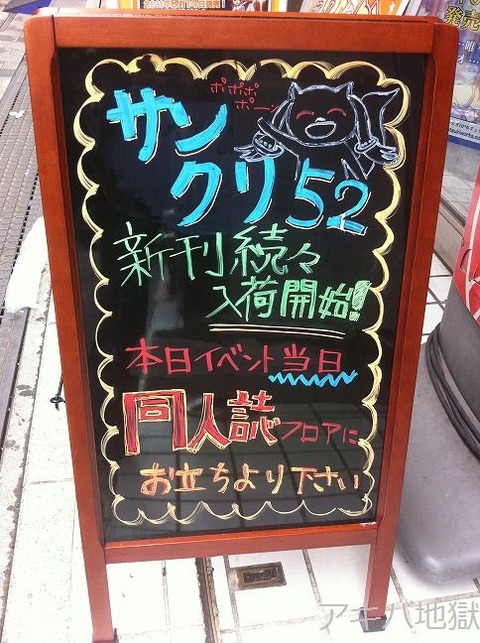 ポポポ
ポーン
サン
クリ52
新刊続々
入荷開始!
本日イベント当日
同人誌フロアに
お立ちより下さい
発売
アキバ地獄